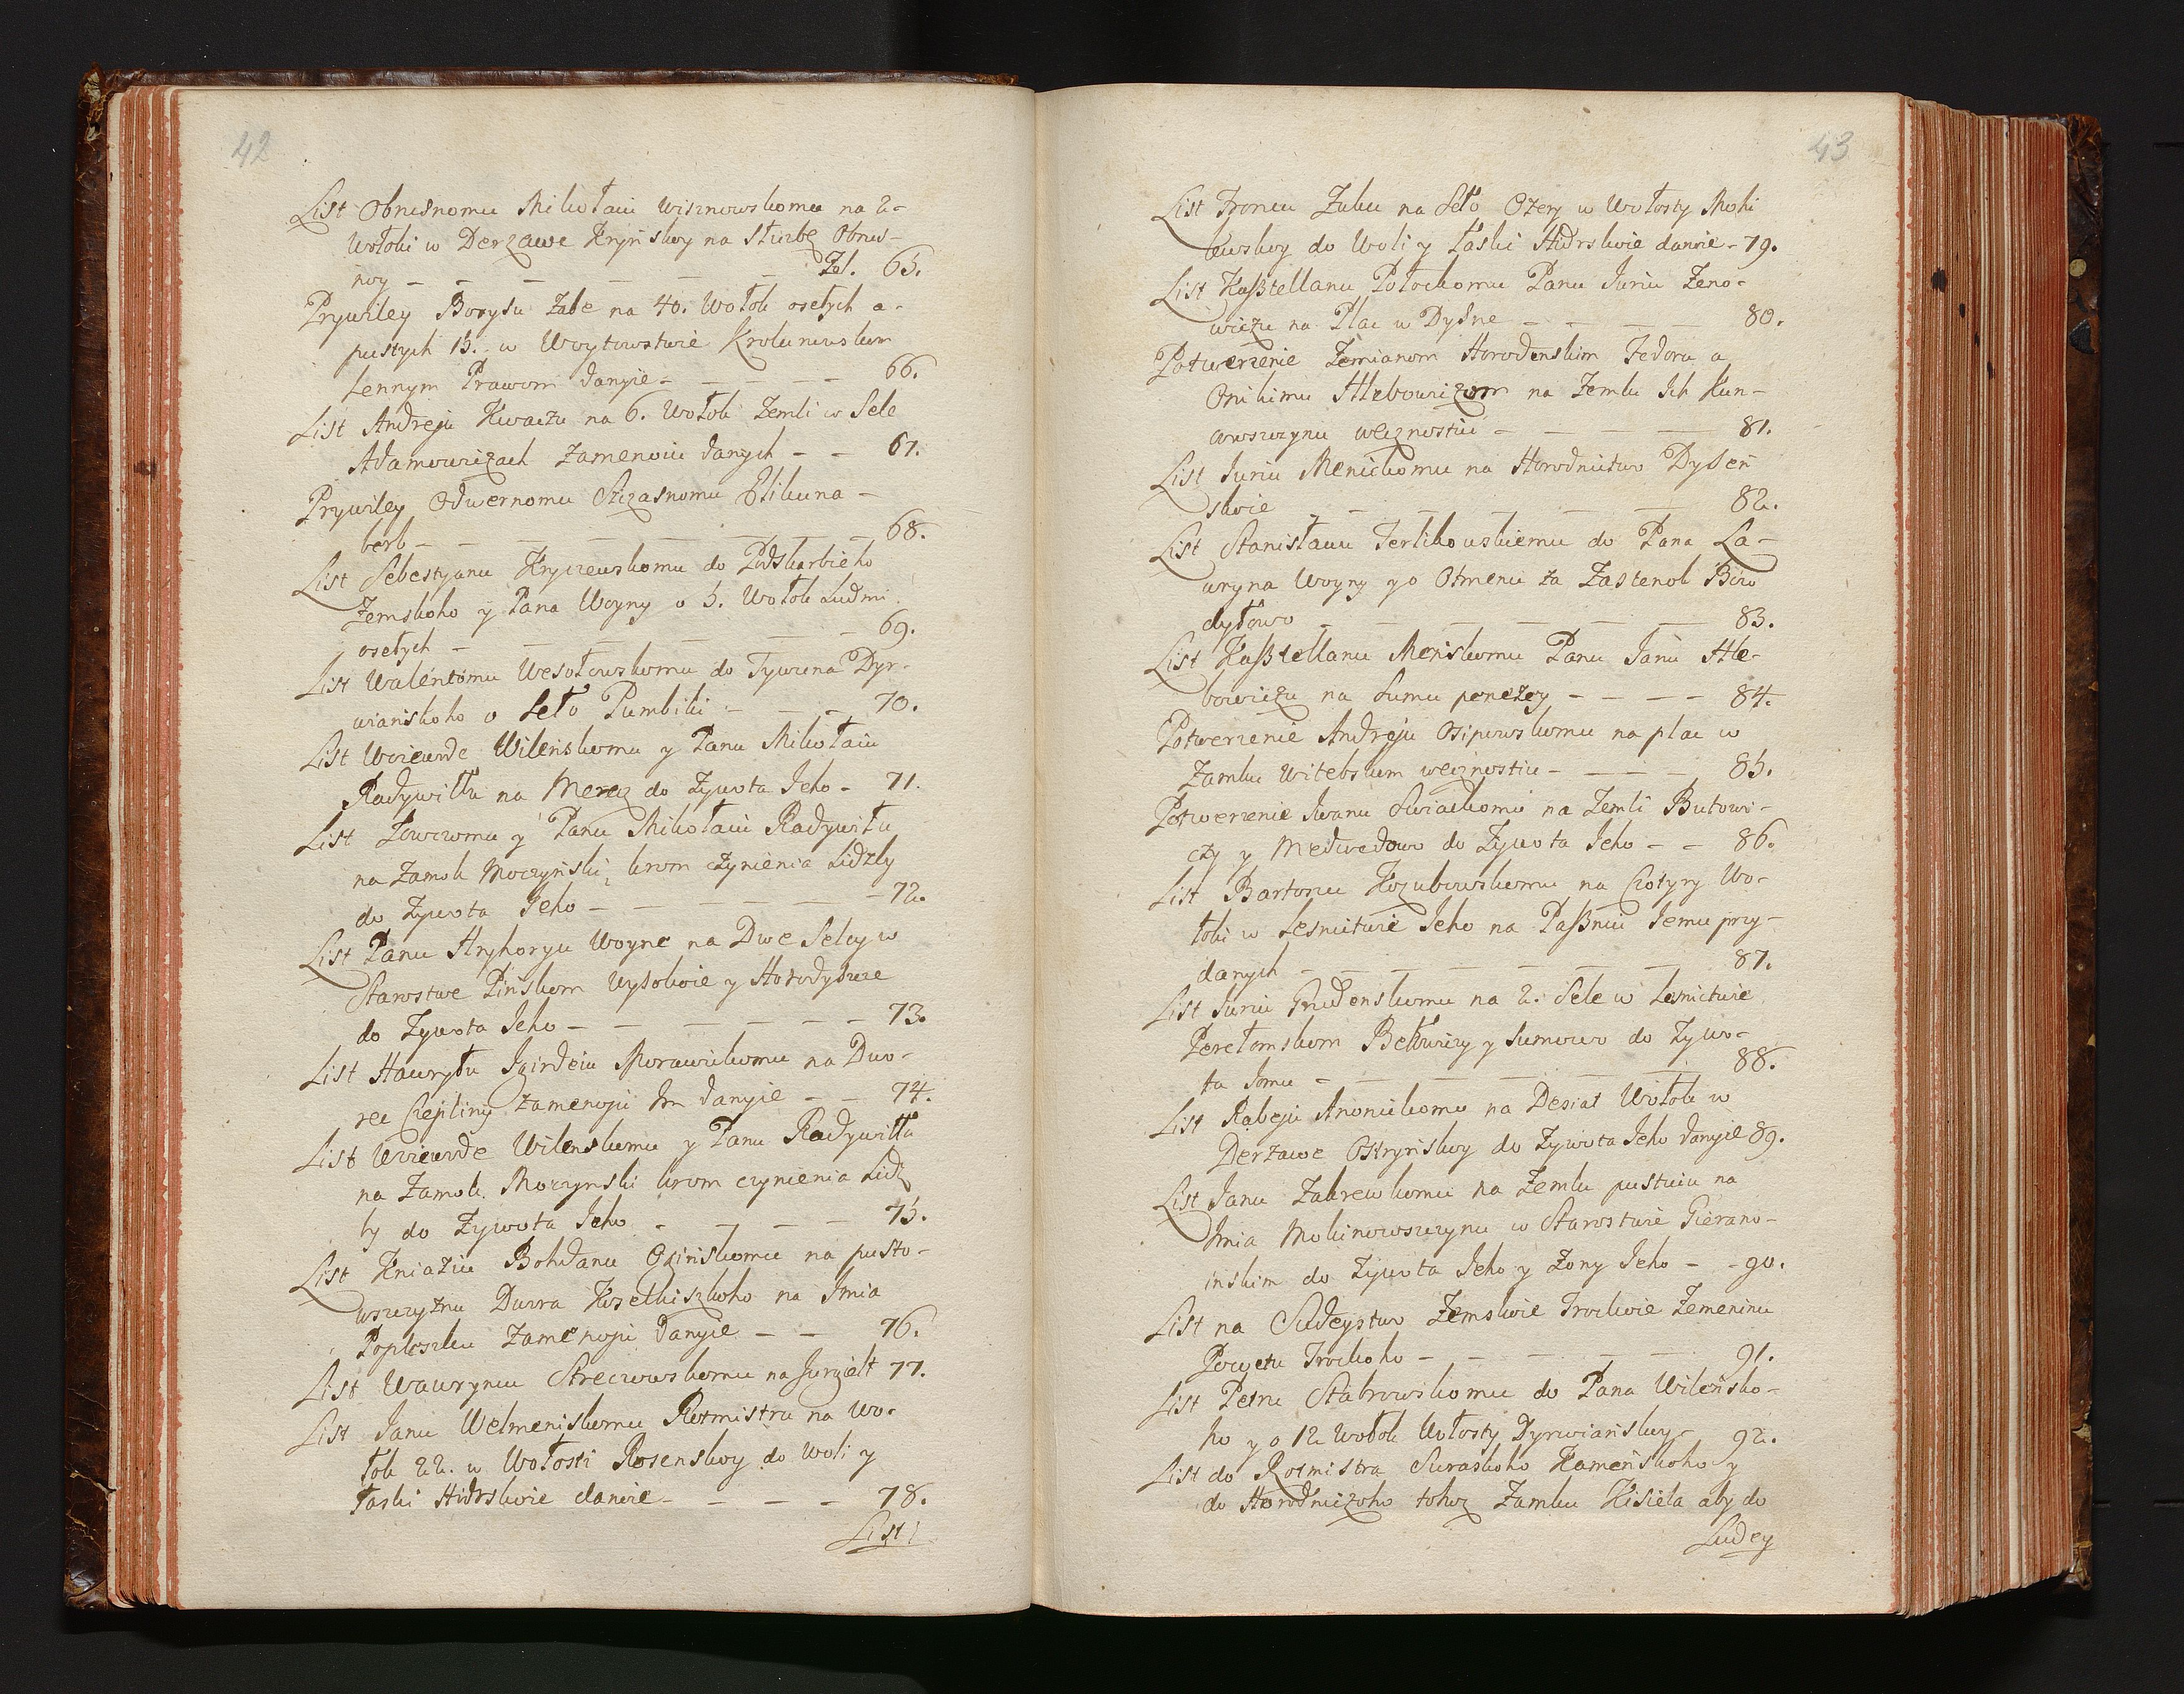 42
List Obrusnomu Mikołaiu Wisznowskomu na 2-
Wołoki w Derzawe Kryńskoy na Służbę Obrus-
noy - - - - - - Fol. 65.
Prywiley Borysu Zabe na 40. Wołok osełych a-
pustych 13. w Woytowstwie Krolunowskom
Lennym Prawom danyie - - - - - 66.
List Andreju Kwaczu na 6. Wołok Zemli w Sele
Adamowiczach Zamenoiu danych - - 67.
Prywiley Odwernomu Szczasnomu Hliku na -
herb - - - - - - - 68.
List Sebestyanu Kryczewskomu do Podskarbieho
Zemskoho y Pana Woyny o 5. Wołok Ludmi
osełych - - - - - - 69.
List Walentomu Wesołowskomu do Tywuna Dyr-
wianskoho o Seło Pumbiki - - - 70.
List Woiewode Wilenskomu y Panu Mikołaiu
Radywiłła na Merecz do Zywota Jeho - 71.
List Łowczomu y Panu Mikołaiu Radywiłu
na Zamok Moczyński, krom czynienia Lidzby
do Zywota Jeho - - - - - - 72.
List Panu Hryhoryu Woyne na Dwe Selcy w
Starostwe Pińskom Wysokoie y Horodyszcze
do Zywota Jeho - - - - - - 73.
List Hawryłu Igirdeiu Morawickomu na Dwo-
rec Ciepliny Zamenoju Im danyie - - 74.
List Woiewode Wilenskomu y Panu Radywiłła
na Zamok Moczynski krom czynienia Lidz
by do Zywota Jeho - - - - 75.
List Kniaziu Bohdanu Oginskomu na pusto-
wszczyznu Dwora Koselkiszkoho na Imia
Poploszku Zamenoju danyie - - 76.
List Wawryncu Streczowskomu na Jurgielt 77.
List Janu Wolmenskomu Rotmistru na Wo-
łok 22. w Wołosti Rosenskoy do Woli y
łaski Hidrskoie danoie - - - - 78.
List
43
List Froncu Zuku na Seło Ozery w Wołosty Mohi
lewskoy do Woli y łaski Hidrskoie danoie - 79.
List Kaßtellanu Połockomu Panu Juriu Zeno-
wiczu na Plac w Dysne - - - - 80.
Potwerzenie Zemianom Horodenskim Fedoru a
Onikimu Hlebowiczom na Zemlu Ich Kun-
cowszczynu wecznostiu - - - - 81.
List Juriu Menickomu na Horodnictwo Dyseń
skoie - - - - - - 82.
List Stanisławu Terlikowskiemu do Pana La-
wryna Woyny y o Otmenu za Zastenok Biwo
dyłowo - - - - - - 83.
List Kaßtellanu Menskomu Panu Janu Hle-
bowiczu na Sumu penezey - - - - 84.
Potwerzenie Andreju Osipowskomu na plac w
Zamku Witebskum wecznostiu - - - - 85.
Potwerzenie Iwanu Swiackomu na Zemli Butowi-
czy y Medwedowo do Zywota Jeho - - 86.
List Bartoszu Kozubowskomu na Czotyry Wo-
łoki w Lesnictwie Jeho na Paßniu Jemu pry-
danych - - - - - - 87.
List Juriu Hrudenskomu na 2. Sele w Lesnictwie
Perełomskom Bełkowiczy y Sumowo do Zywo-
ta Jomu - - - - - 88.
List Rabeju Anonickomu na Desiat Wołok w
Derzawe Ostryńskoy do Zywota Jeho danyie 89.
List Janu Zakrewkomu na Zemlu pustuiu na
Imia Mokinowszczynu w Starostwie Gierano-
inskim do Zywota Jeho y Zony Jeho - - 90.
List na Sudeystwo Zemskoie Trockoie Zemeninu
Powetu Trockoho - - - - - 91.
List Petru Stabrowskomu do Pana Wileńsko-
ho y o 12 Wołok Wołosty Dyrwianskoy - 92.
List do Rotmistra Suraskoho Kameńskoho y
do Horodniczoho tohoż Zamku Kisiela aby do
Ludey